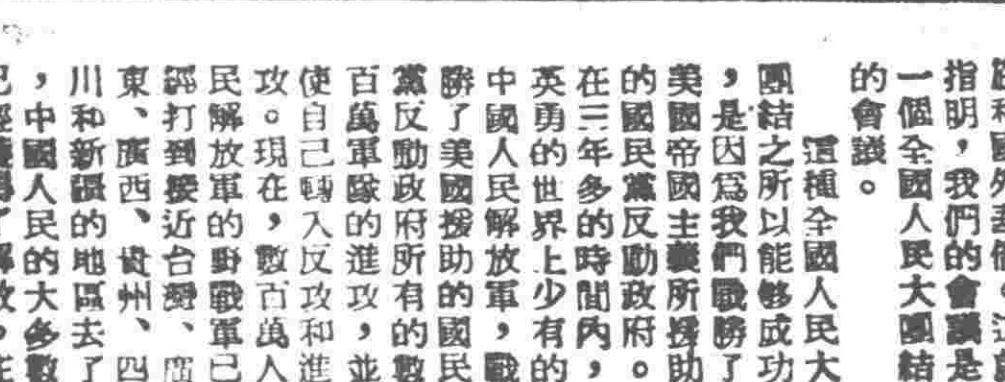 指明，我們的會議是
一個全國人民大團結
的會議。
這種全國人民大
團結之所以能够成功
，是因爲我們戰勝了
美國帝國主義所援助
的國民黨反動政府。
在三年多的時間內，
英勇的世界上少有的
中國人民解放軍，戰
勝了美國援助的國民
黨反動政府所有的數
百萬軍隊的進攻，並
使自己轉入反攻和進
攻。現在，數百萬人
民解放軍的野戰軍已
經打到接近台灣、廣
東、廣西、貴州、四
川和新疆的地區去了
，中國人民的大多數
已經獲得了解放，在